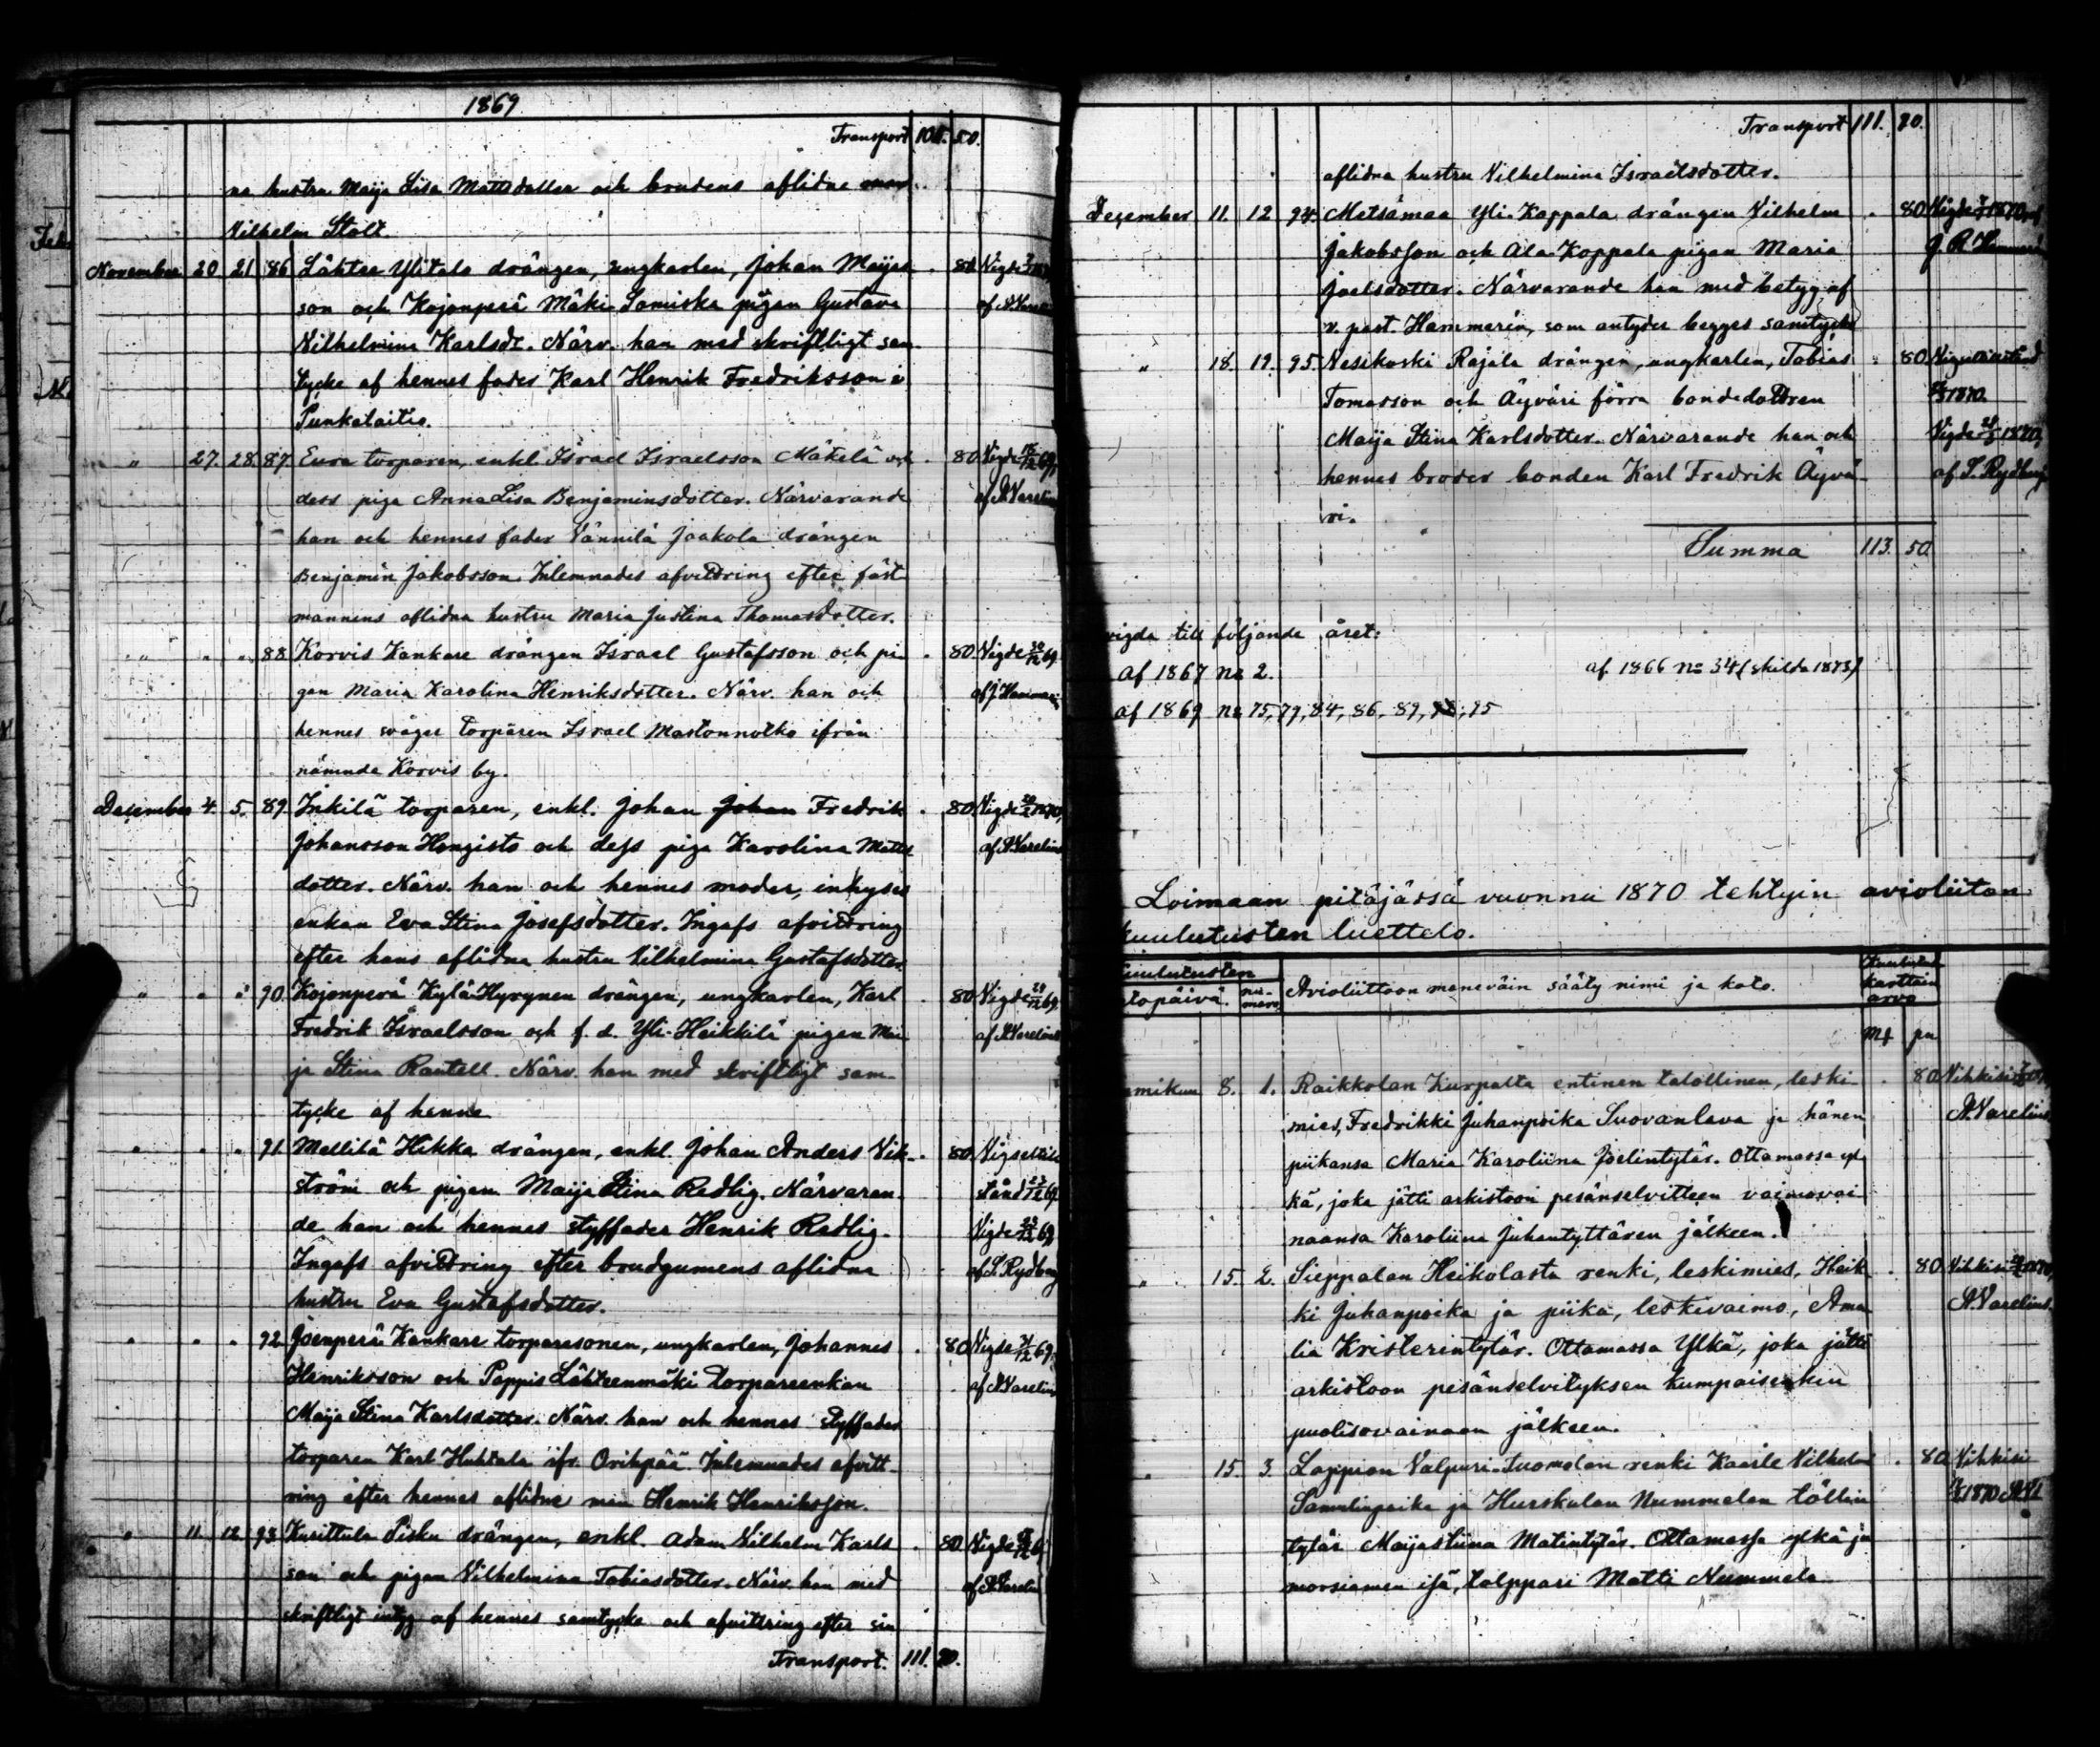 1869
Transport 105. 50.
na hustru Maija Lisa Mattsdotter och brudens aflidne man
Vilhelm Stolt.
November 20 21 86 Lähtee Ylitalo drängen, ungkarlen, Johan Maijas . 80 Vigde
son och Kojonperä Mäki Lamiska pigan Gustava
Vilhelmina Karlsdr. Närv. han med skriftligt sam
tycke af hennes fader Karl Henrik Fredriksson i
Punkalaitio.
" 27. 28. 87. Eura torparen, enkl. Israel Israelsson Mäkelä och . 80 Vigde 18/12 69,
dess piga Anna Lisa Benjaminsdotter. Närvarande af A. Varelius
han och hennes fader Vännilä Jaakola drängen
Benjamin Jakobsson. Inlemnades afvittring efter fäst
mannens aflidna hustru Maria Justina Thomasdotter.
" " " 88 Korvis Kankare drängen Israel Gustafsson och pi . 80 Vigde 30/12 69
gan Maria Karolina Henriksdotter. Närv. han och af J. Hammarin
hennes svåger torparen Israel Mastonnotko ifrån
nämnda Korvis by.
December 4. 5. 89. Inkilä torparen, enkl. Johan Johan Fredrik . 80. Vigde 1870,
Johansson Hongisto och dess piga Karolina Matts af A. Varelius
dotter. Närv. han och hennes moder, inhyses
enkan Eva Stina Josefsdotter. Ingafs afvittring
efter hans aflidna hustru Vilhelmina Gustafsdotter
" " " 90. Kojonperä Kylä-Hyrynen drängen, ungkarlen, Karl . 80 Vigde 29/12 69.
Fredrik Israelsson och f. d. Yli-Heikkilä pigan Mai af A. Varelius
ja Stina Rautell. Närv. han med skriftligt sam-
tycke af henne
" " " 91. Mellilä Hikka drängen, enkl. Johan Anders Vik- . 80.
ström och pigan Maija Stina Redlig. Närvaran-
de han och hennes styffader Henrik Redlig. Vigde 69,
Ingafs afvittring efter brudgumens aflidna af S. Rydberg
hustru Eva Gustafsdotter.
" " " 92 Joenperä Kankare torparesonen, ungkarlen, Johannes . 80 Vigde 31/12 69.
Henriksson och Pappis Lähteenmäki torpareenkan af A. Varelius
Maija Stina Karlsdotter. Närv. han och hennes styffader
torparen Karl Huhtala ifr. Orihpää. Inlemnades afvitt-
ring efter hennes aflidne man Henrik Henriksson.
" 11. 12. 93. Kurittula Pisku drängen, enkl. Adam Vilhelm Karls . 80. Vigde
son och pigan Vilhelmina Tobiasdotter. Närv. han med af A. Varelius
skriftligt intyg af hennes samtycke och afvittring efter sin
Transport. 111. 90.
Transport 111. 90.
aflidna hustru Vilhelmina Israelsdotter.
December 11. 12 94. Metsämaa Yli-Kappala drängen Vilhelm . 80 Vigde 1870, af
Jakobsson och Ala-Koppala pigan Maria
Joelsdotter. Närvarande han med betyg af
v. past. Hammarin, som antyder begges samtycke
" 18. 19. 95. Vesikoski Rajala drängen, ungkarlen, Tobias . 80
Tomasson och Äyväri förra bondedottren 1870.
Maija Stina Karlsdotter. Närvarande han och Vigde 1870,
hennes broder bonden Karl Fredrik Äyvä- af S. Rydberg
ri.
Summa 113. 50
vigda till följande året:
af 1867 no 2. af 1866 no 34 (skilda 1873)
af 1869 no 75, 79, 84, 86, 89, 95
Loimaan pitäjässä vuonna 1870 tehtyin avioliiton
kuulutusten luettelo.
kuulutusten
topäivä. numero. Avioliittoon meneväin sääty nimi ja koto. karttain arvo
Mk pn
mikun 8. 1. Raikkolan Kurpalta entinen talollinen, leski- . 80
mies, Fredrikki Juhanpoika Suovanlava ja hänen A. Varelius
piikansa Maria Karoliina Joelintytär. Ottamassa yl-
kä, joka jätti arkistoon pesänselvitteen vaimovai
naansa Karoliina Juhantyttären jälkeen.
" 15. 2. Sieppalan Heikolasta renki, leskimies, Heik . 80 Vihkisi 1870,
ki Juhanpoika ja piika, leskivaimo, Ama A. Varelius.
lia Kristerintytär. Ottamassa Ylkä, joka jätti
arkistoon pesänselvityksen kumpaisenkin
puolisovainaan jälkeen.
" 15. 3. Lappion Valpuri-Tuomolan renki Kaarle Vilhelm . 80 Vihkisi
Samulinpoika ja Hurskalan Nummelan töllin 1870
tytär Maijastiina Matintytär. Ottamassa ylkä ja
morsiamen isä, tolppari Matti Nummela